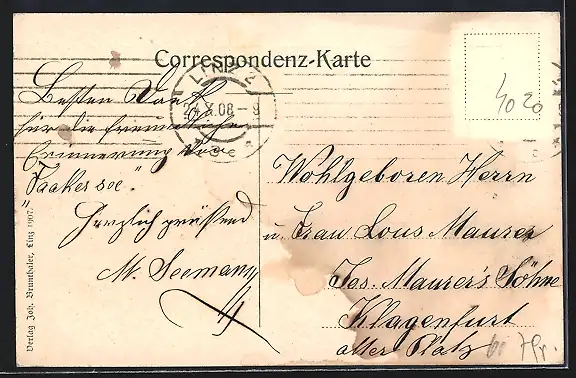 Correspondenz-Karte
LINZ 2
X.08-9
40 20
Besten Dank
für die freundliche
Erinnerung vom
"Faakersee".
Herzlich grüssend
M. Seemann
Wohlgeboren Herrn
u. Frau Lous Maurer
Jos. Maurer's Söhne
Klagenfurt
alter Platz
Verlag Joh. Brunthaler, Linz 1907.